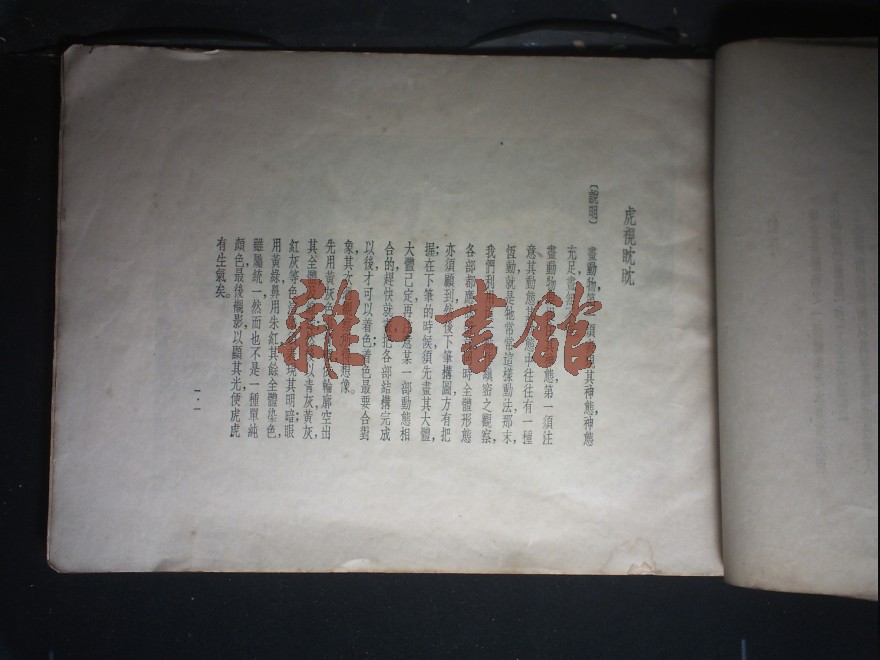 虎視眈眈
〔說明〕
畫動物,第一須
其神態,神態
充足,畫無
畫動物
態第一須注
意其動態,其動態中往往有一種
恆動,就是牠常常這樣動法那末,
我們利
縝密之觀察,
各部都應
時全體形態
亦須顧到然後下筆構圖方有把
握;在下筆的時候,須先畫其大體,
大體已定再
某一部動態相
合的趕快就
把各部結構完成
以後,才可以着色;着色最要合對
象,其
想像。
先用黃灰色
輪廓空出
其全體
以青灰,黃灰,
紅灰等色
現其明暗;眼
用黃綠,鼻用朱紅其餘全體染色,
雖屬統一然而也不是一種單純
顔色,最後襯影,以顯其光,便虎虎
有生氣矣。
一·一
雜·書館